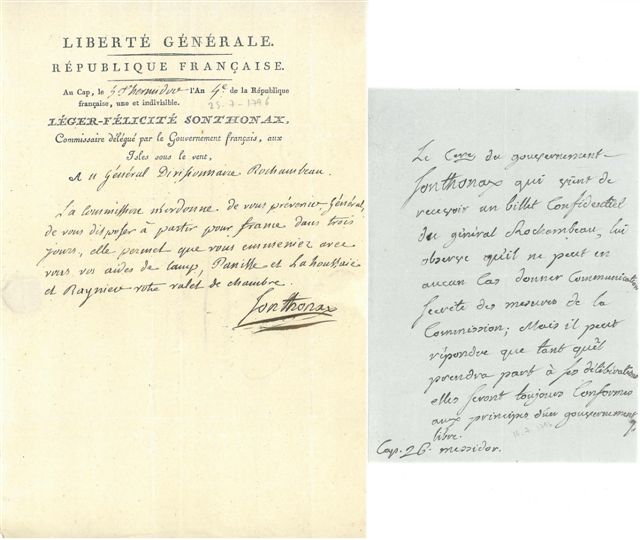 LIBERTÉ GÉNÉRALE.
RÉPUBLIQUE FRANÇAISE.
Au Cap, le 5 Thermidor l'An 4e de la République
française, une et indivisible.
25-7-1796
LÉGER-FÉLICITÉ SONTHONAX,
Commissaire délégué par le Gouvernement français, aux
Isles sous le vent,
Au Général Divisionnaire Rochambeau.
La Commission m'ordonne de vous prévenir Général,
de vous disposer à partir pour france dans trois
jours, elle permet que vous emmeniez avec
vous vos aides de camp, Panisse et Lahoussaie
et Raynier votre valet de chambre.
Sonthonax
Le Cre du gouvernement
Sonthonax qui vient de
recevoir un billet Confidentiel
du général Rochambeau, lui
observe qu'il ne peut en
aucun Cas donner Communication
Secrète des mesures de la
Commission; Mais il peut
répondre que tant qu'il
prendra part à ses délibérations
elles seront toujours Conformes
aux principes d'un gouvernement
libre.
Cap. 26 messidor.